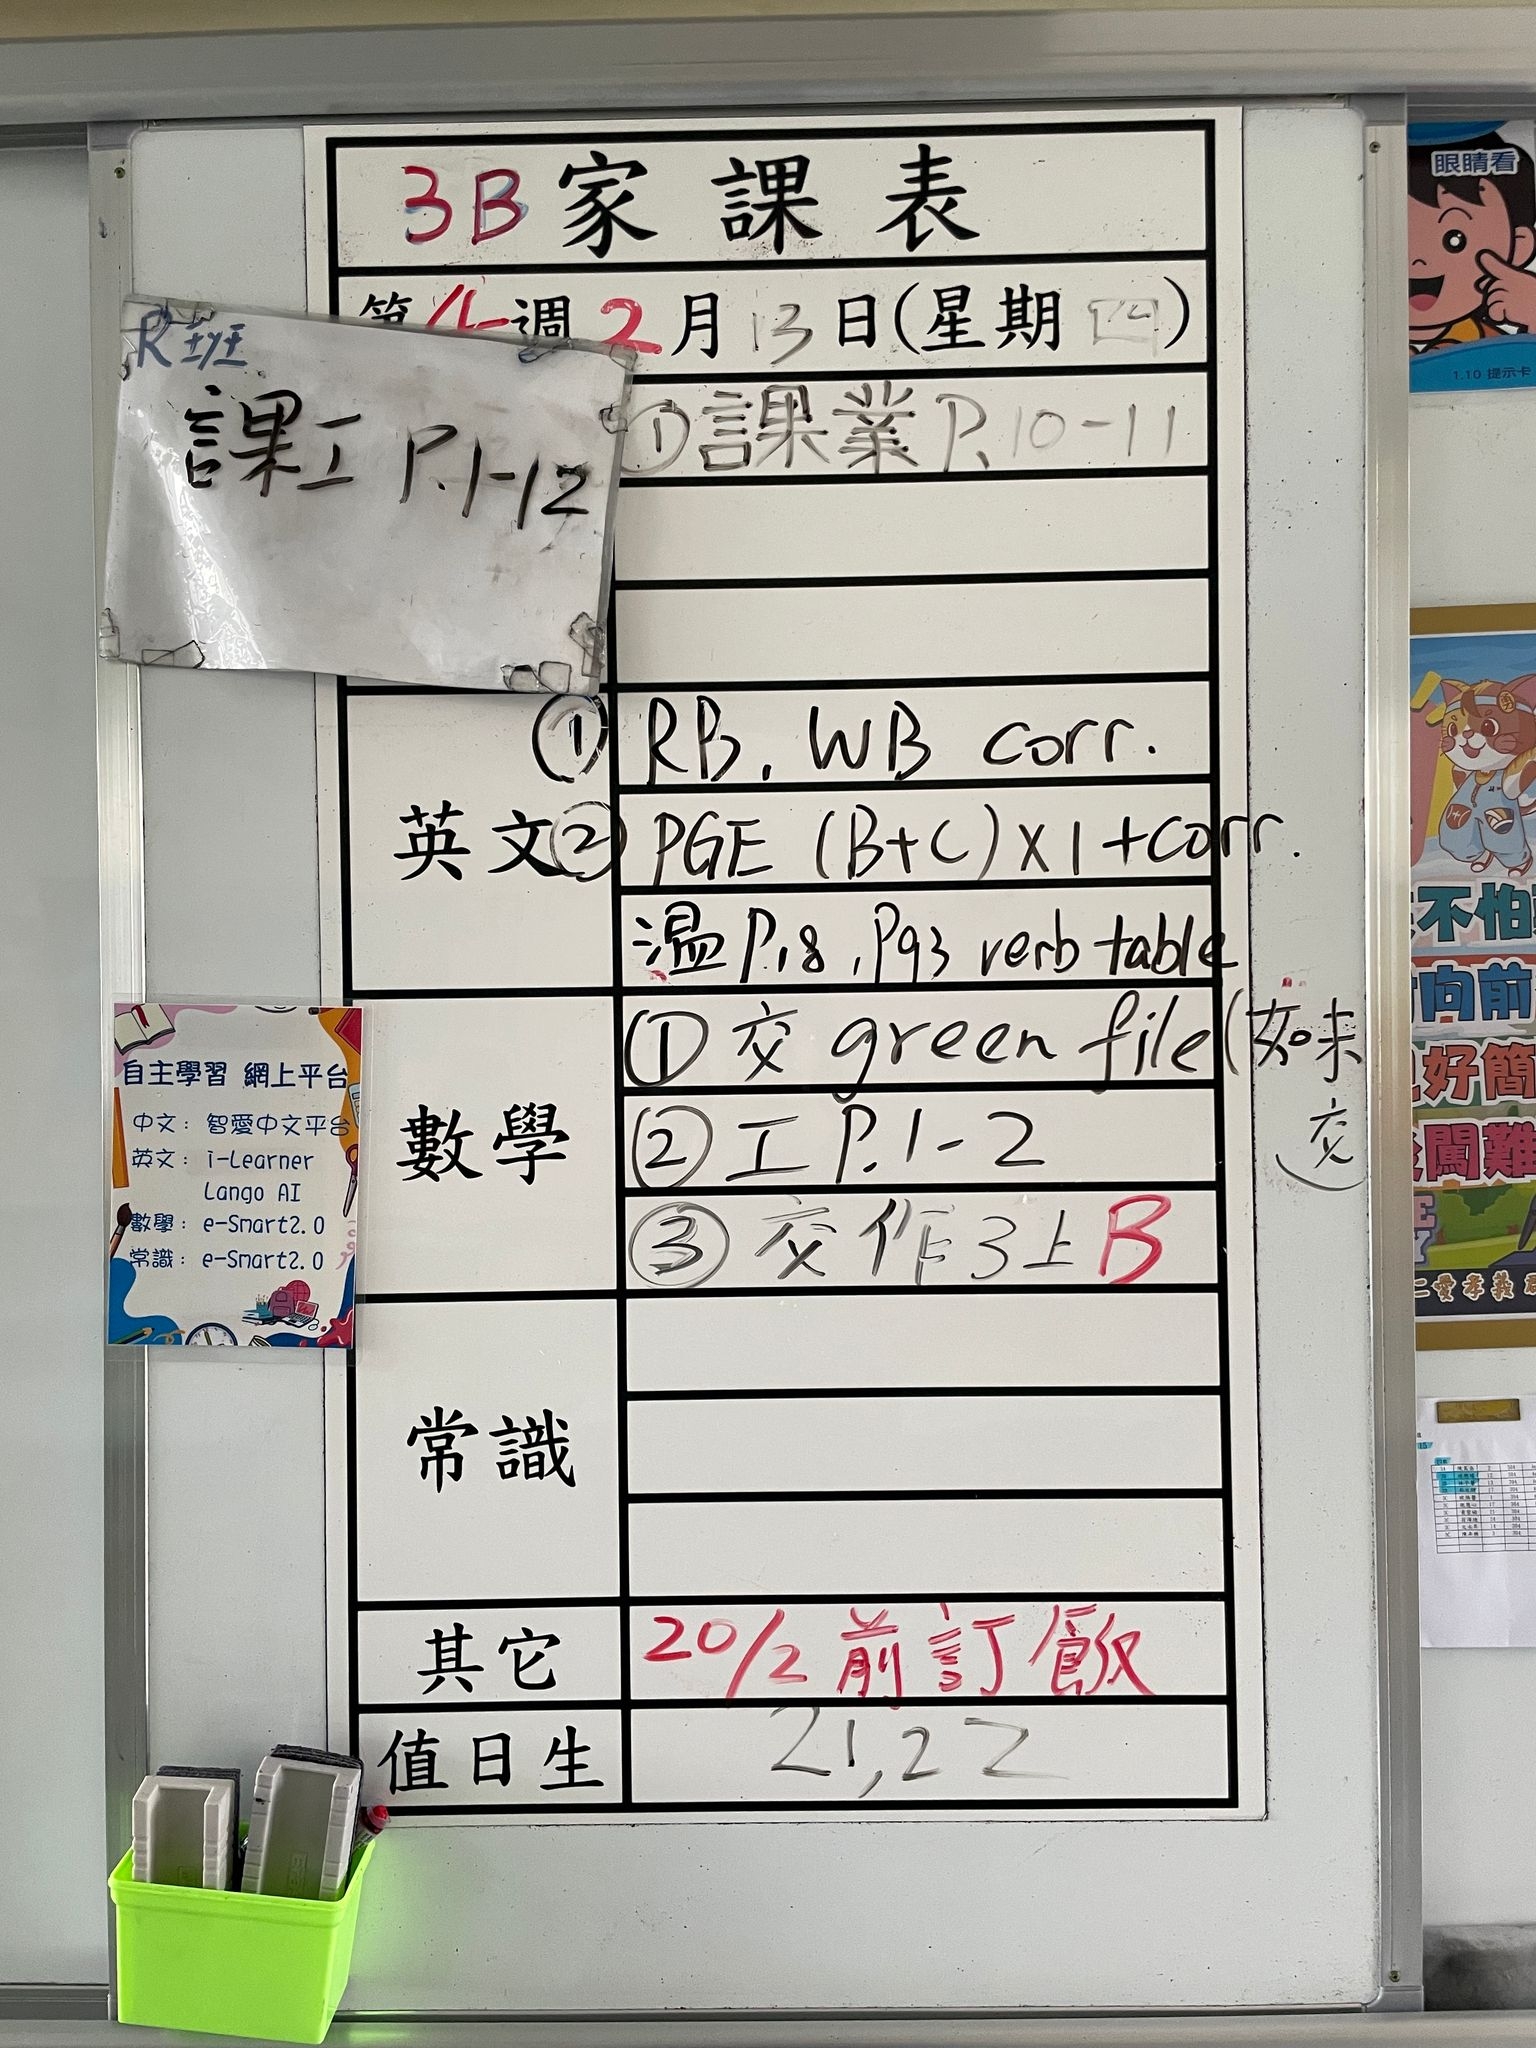 3B家課表
第 週2月13日(星期四)
R班
課工 P.1-12
①課業 P.10-11
英文
① RB, WB corr.
② PGE (B+C)×1+corr.
溫 P.18, P93 verb table
數學
① 交 green file (如未交)
② 工 P.1-2
③ 交作3上B
常識
其它
20/2前訂飯
值日生
21,22
自主學習 網上平台
中文: 智愛中文平台
英文: i-Learner
Lango AI
數學: e-Smart2.0
常識: e-Smart2.0
眼睛看
1.10 提示卡
不怕
向前
好簡
闖難
仁愛孝義